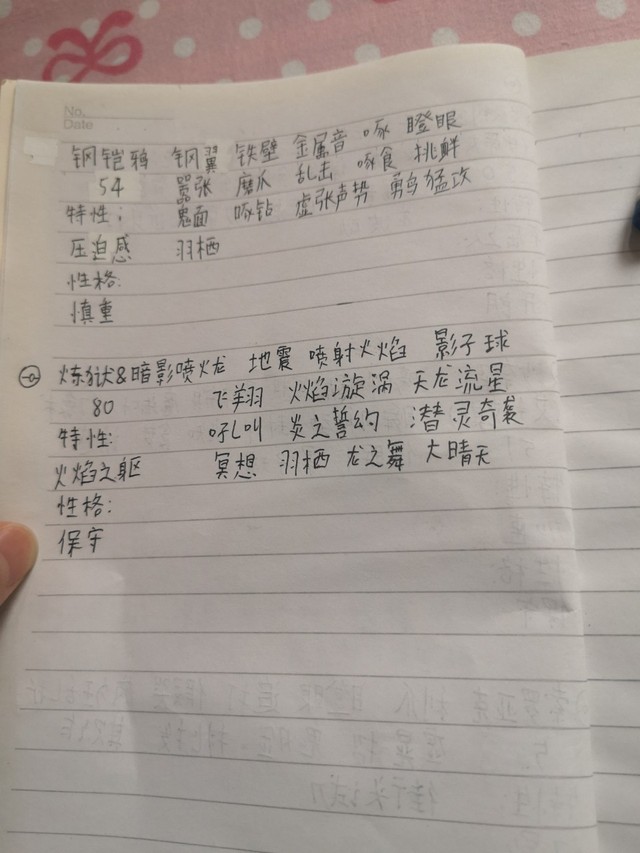 No.
Date
钢铠鸦 钢翼 铁壁 金属音 啄 瞪眼
54 嚣张 磨爪 乱击 啄食 挑衅
特性: 鬼面 啄钻 虚张声势 勇鸟猛攻
压迫感 羽栖
性格:
慎重
炼狱&暗影喷火龙 地震 喷射火焰 影子球
80 飞翔 火焰漩涡 天龙流星
特性: 吼叫 炎之誓约 潜灵奇袭
火焰之躯 冥想 羽栖 龙之舞 大晴天
性格:
保守